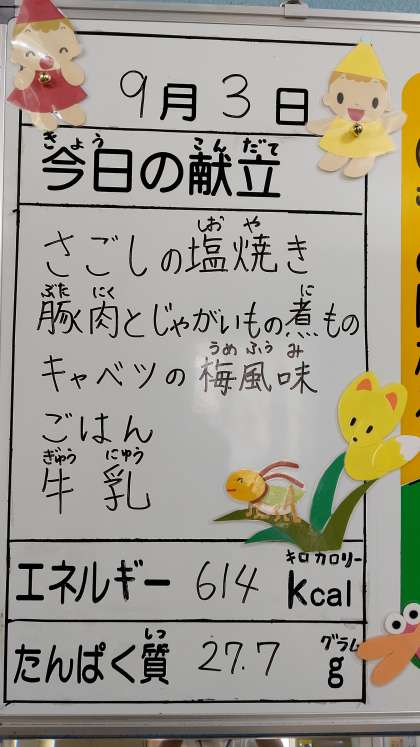 9月3日
きょう こんだて
今日の献立
しお や
さごしの塩焼き
ぶた にく に
豚肉とじゃがいもの煮もの
うめ ふう み
キャベツの梅風味
ごはん
ぎゅう にゅう
牛乳
キロカロリー
エネルギー 614 Kcal
しつ グラム
たんぱく質 27.7 g